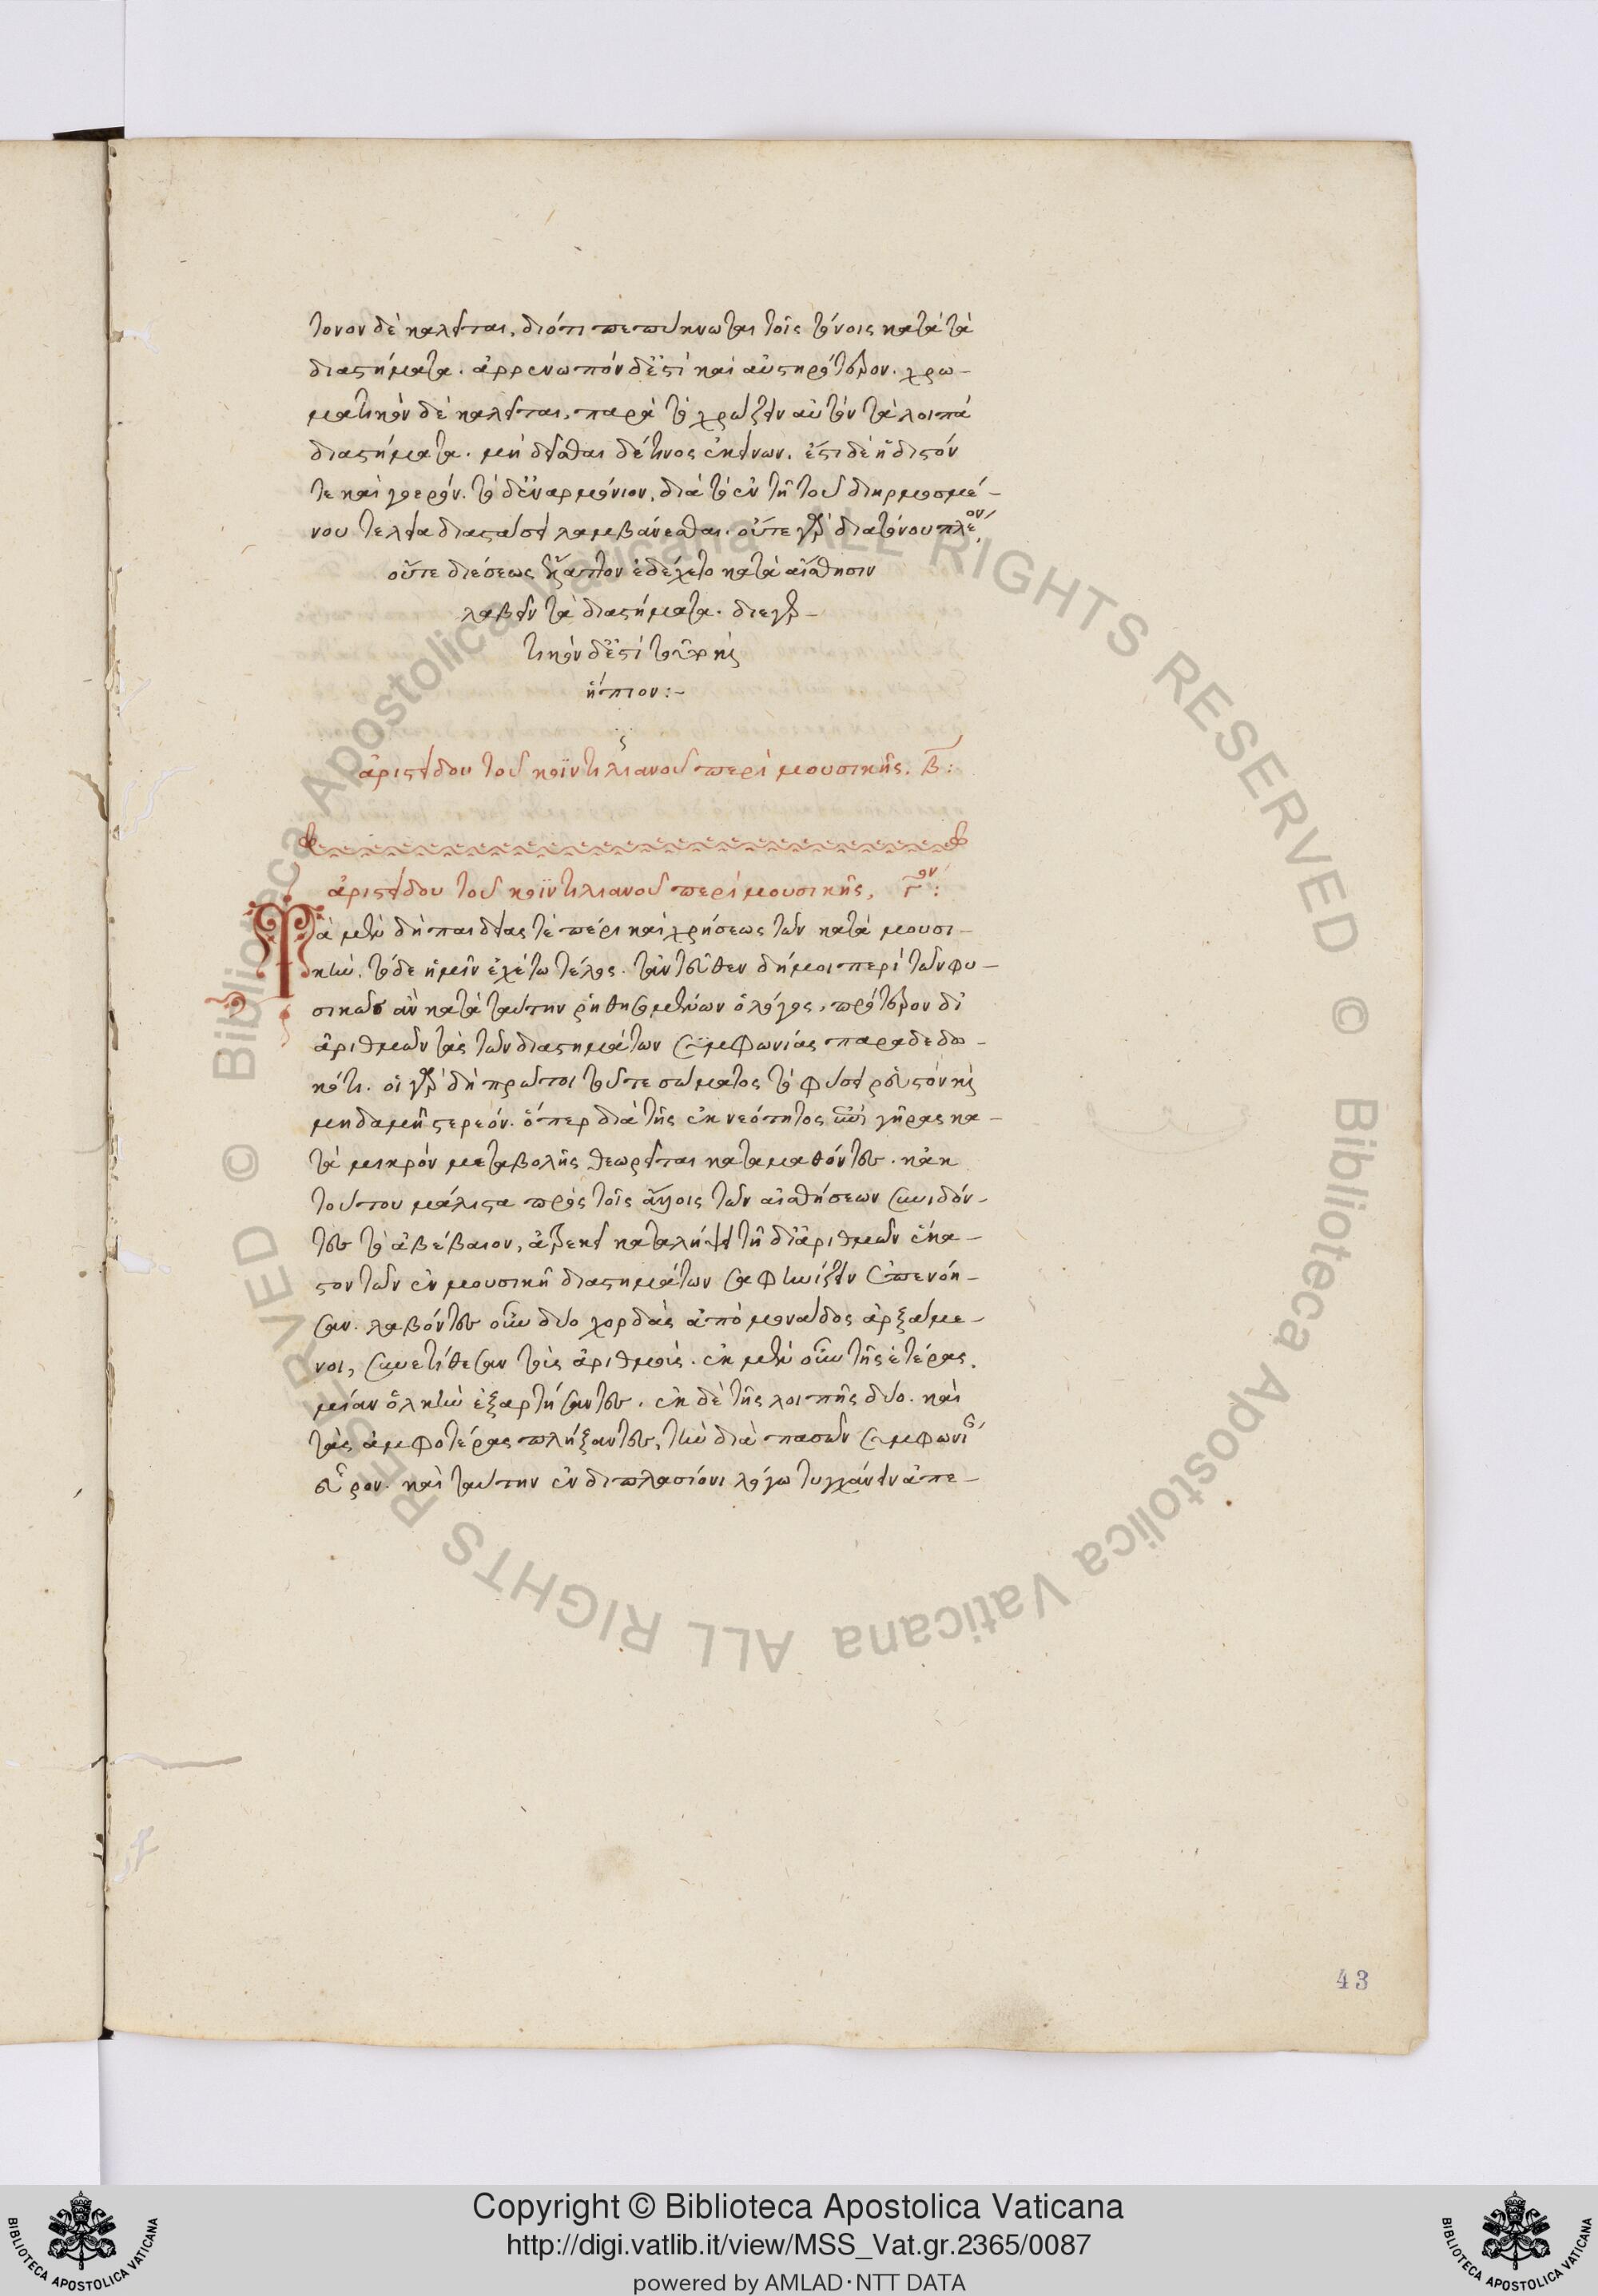 τονον δὲ καλεῖται, διότι πεπύκνωται τοῖς τόνοις κατὰ τὰ
διαστήματα. ἀρρενωπὸν δ' ἐστὶ καὶ αὐστηρότερον. χρω-
ματικὸν δὲ καλεῖται, παρὰ τὸ χρώζειν αὐτὸν τὰ λοιπὰ
διαστήματα. μὴ δεῖσθαι δέ τινος ἐκείνων. ἔστι δὲ ἥδιστόν
τε καὶ γοερόν. τὸ δ' ἐναρμόνιον, διὰ τὸ ἐν τῇ τοῦ διηρμοσμέ-
νου τελεία διαστάσει λαμβάνεσθαι. οὔτε γὰρ διατόνου πλέον,
οὔτε διέσεως ἔλαττον ἐδέχετο κατὰ αἴσθησιν
λαβεῖν τὰ διαστήματα. διεγερ-
τικὸν δ' ἐστὶ τοῦτο καὶ
ἤπιον:-
ἀριστείδου τοῦ κοϊντιλιανοῦ περὶ μουσικῆς. β:
ἀριστείδου τοῦ κοϊντιλιανοῦ περὶ μουσικῆς, γον:
Τὰ μὲν δὴ παιδείας τὲ πέρι καὶ χρήσεως τῶν κατὰ μουσι-
κὴν, τόδε ἡμῖν ἐχέτω τέλος. τἀντεῦθεν δή μοι περὶ τῶν φυ-
σικῶς ἂν κατὰ ταύτην ῥηθησομένων ὁ λόγος, πρότερον δι'
ἀριθμῶν τὰς τῶν διαστημάτων συμφωνίας παραδεδω-
κότι. οἱ γὰρ δὴ πρῶτοι τοῦ τε σώματος τὸ φύσει ῥευστὸν καὶ
μηδαμῆ στερεόν. ὅπερ διὰ τῆς ἐκ νεότητος ἐπὶ γῆρας κα-
τὰ μικρὸν μεταβολῆς θεωρεῖται καταμαθόντες. κἀκ
τούτου μάλιστα πρὸς τοῖς ἄλλοις τῶν αἰσθήσεων συνιδόν-
τες τὸ ἀβέβαιον, ἀτρεκεῖ καταλήψει τῇ δι' ἀριθμῶν ἕκα-
στον τῶν ἐν μουσικῇ διαστημάτων σαφηνίζειν ἐπενόη-
σαν. λαβόντες οὖν δύο χορδὰς ἀπὸ μονάδος ἀρξάμε-
νοι, συνετίθεσαν τοῖς ἀριθμοῖς. ἐκ μὲν οὖν τῆς ἑτέρας,
μίαν ὁλκὴν ἐξαρτήσαντες. ἐκ δὲ τῆς λοιπῆς δύο. καὶ
τὰς ἀμφοτέρας πλήξαντες, τὴν διὰ πασῶν συμφωνί
εὗρον. καὶ ταύτην ἐν διπλασίονι λόγω τυγχάνειν ἀπε-
43
Copyright © Biblioteca Apostolica Vaticana
http://digi.vatlib.it/view/MSS_Vat.gr.2365/0087
powered by AMLAD·NTT DATA
BIBLIOTECA APOSTOLICA VATICANA
BIBLIOTECA APOSTOLICA VATICANA
© Biblioteca Apostolica Vaticana ALL RIGHTS RESERVED © Biblioteca Apostolica Vaticana ALL RIGHTS RESERVED